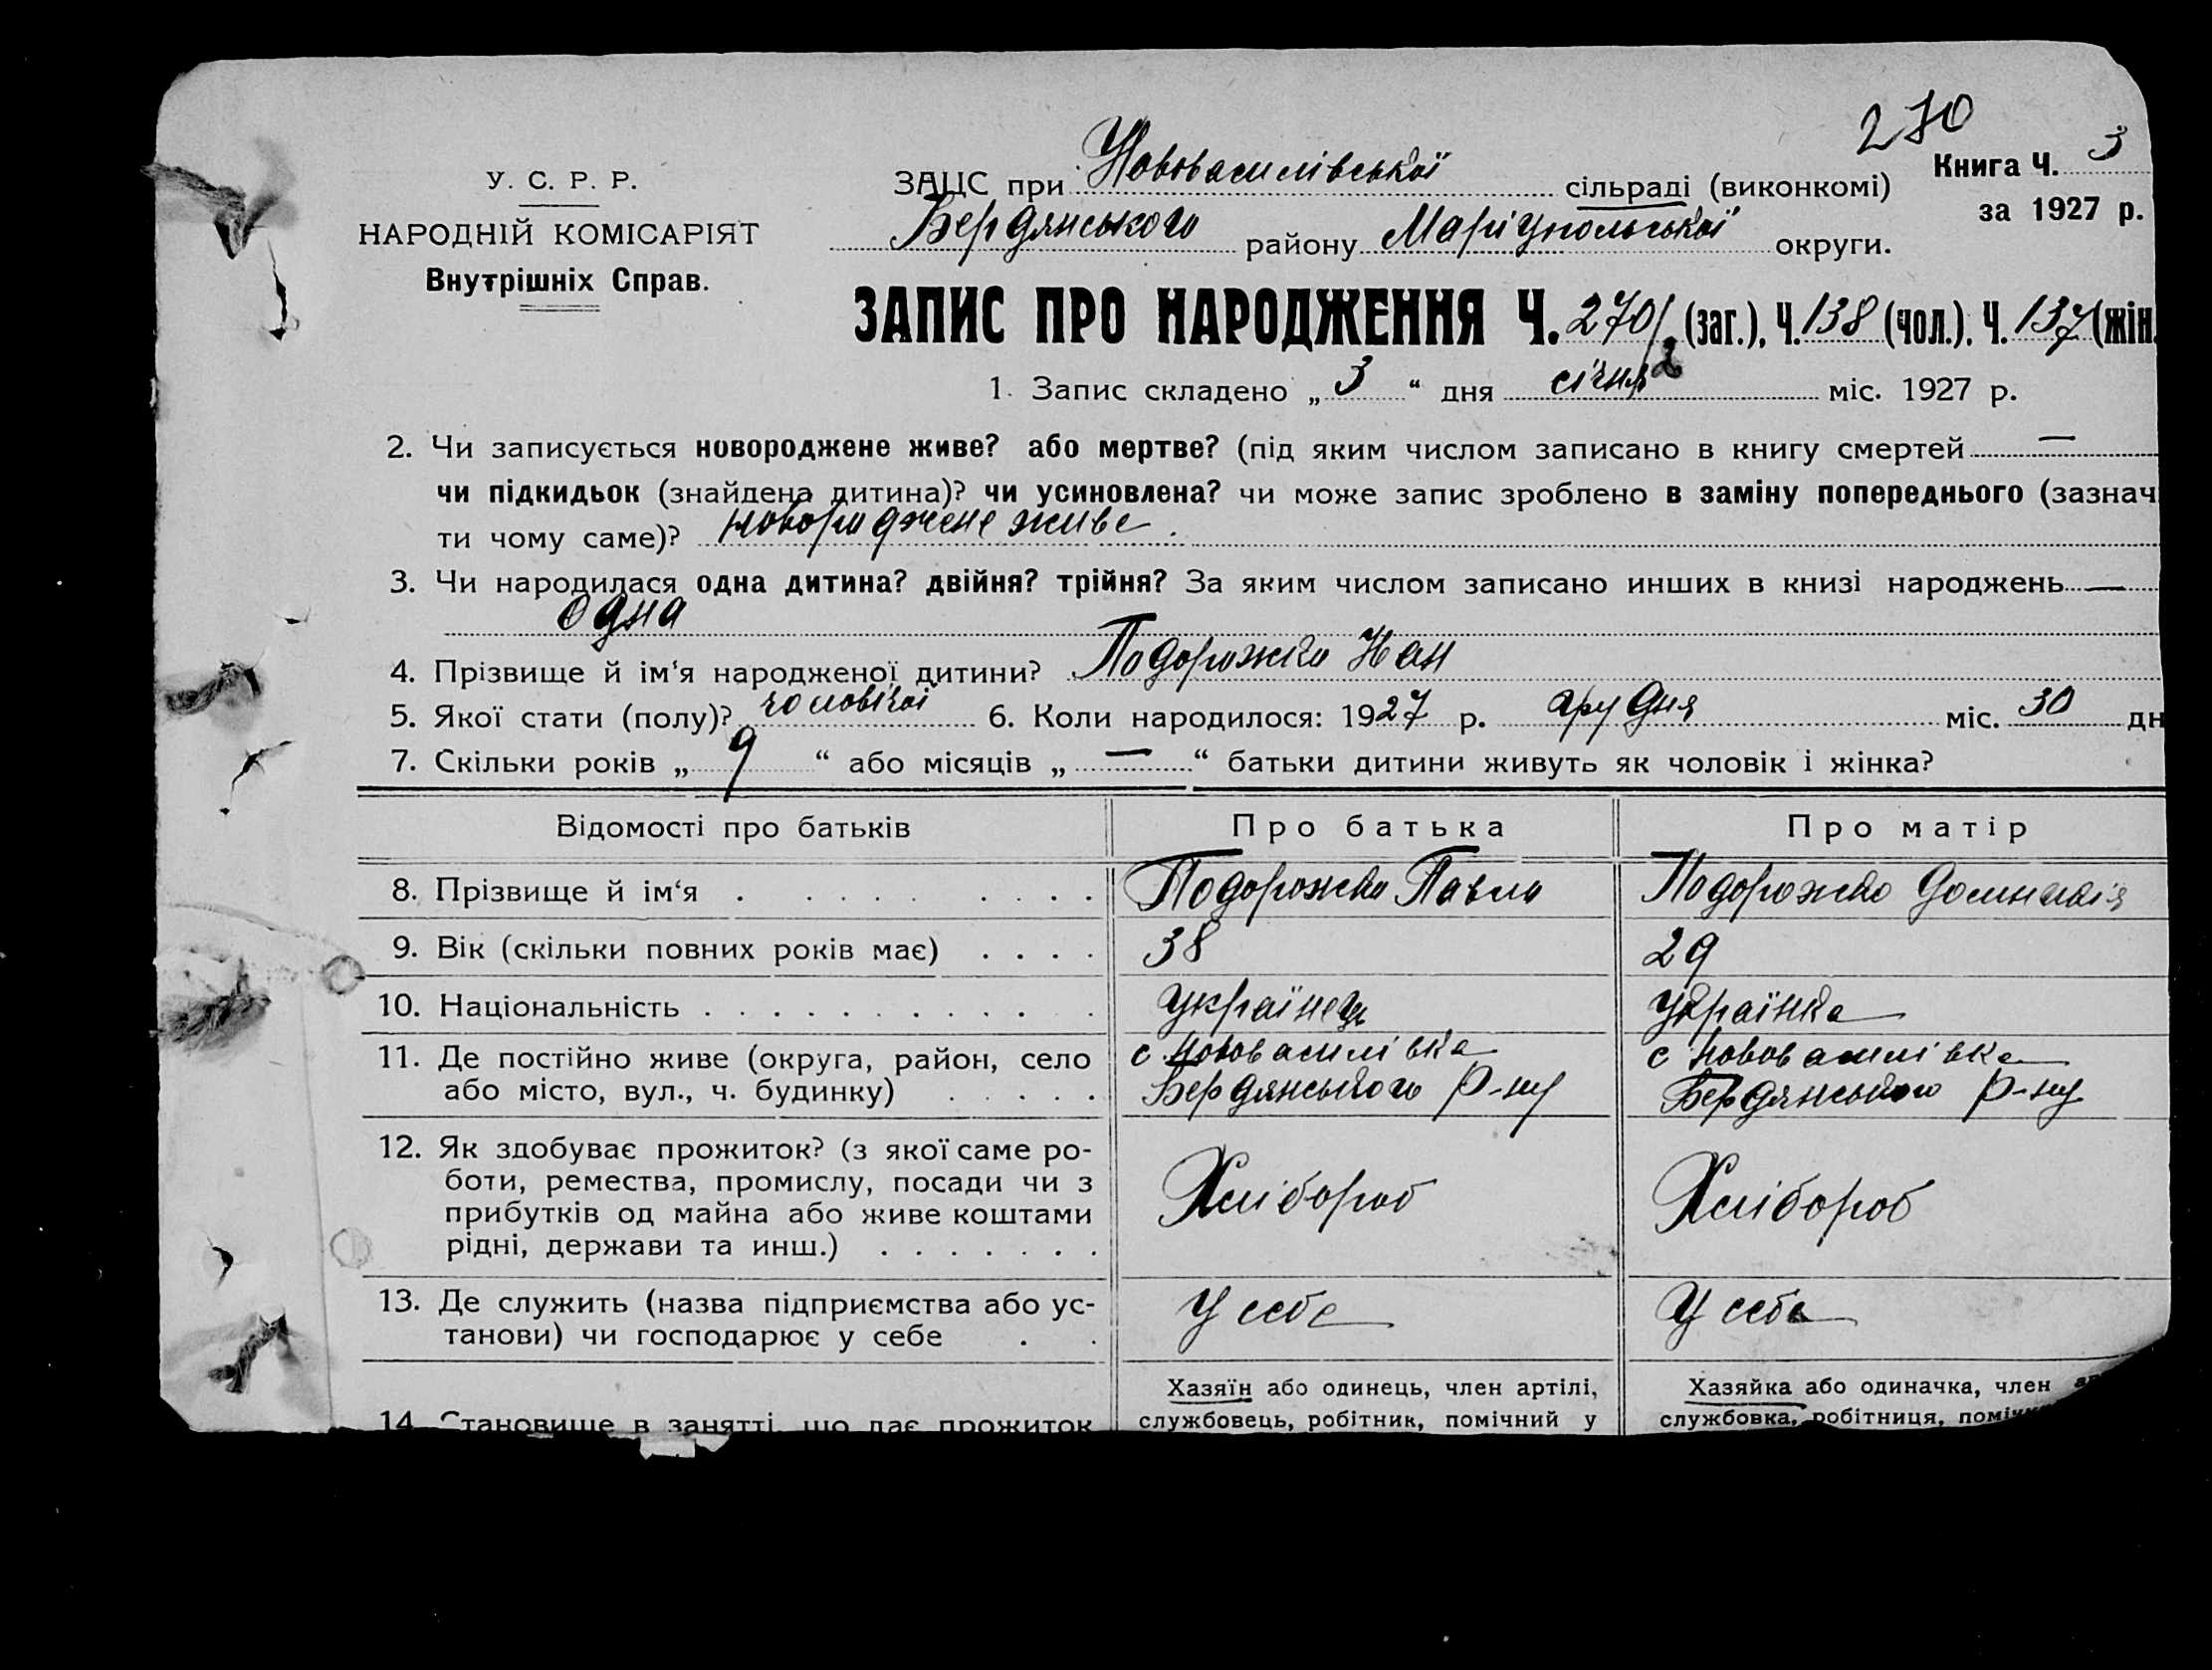 270
У. С. Р. Р.
НАРОДНІЙ КОМІСАРІЯТ
Внутрішніх Справ.
ЗАЦС при Нововасилівської сільраді (виконкомі)
Книга Ч. 3
за 1927 р.
Бердянського району Маріупольської округи.
ЗАПИС ПРО НАРОДЖЕННЯ Ч. 270/2 (заг.), Ч. 138 (чол.), Ч. 137 (жін.
1. Запис складено „ 3 “ дня січня міс. 1927 р.
2. Чи записується новороджене живе? або мертве? (під яким числом записано в книгу смертей —
чи підкидьок (знайдена дитина)? чи усиновлена? чи може запис зроблено в заміну попереднього (зазнач
ти чому саме)? новороджене живе.
3. Чи народилася одна дитина? двійня? трійня? За яким числом записано инших в книзі народжень —
одна
4. Прізвище й ім‘я народженої дитини? Подорожко
5. Якої стати (полу)? чоловічої 6. Коли народилося: 1927 р. грудня міс. 30 дн
7. Скільки років „ 9 “ або місяців „ — “ батьки дитини живуть як чоловік і жінка?
Відомості про батьків
Про батька
Про матір
8. Прізвище й ім‘я . . . . . . . .
Подорожко Павло
Подорожко
9. Вік (скільки повних років має) . . . .
38
29
10. Національність . . . . . . . . . . .
Українець
Українка
11. Де постійно живе (округа, район, село
або місто, вул., ч. будинку) . . . . .
с Нововасилівка
Бердянського р-ну
с Нововасилівка
Бердянського р-ну
12. Як здобуває прожиток? (з якої саме ро-
боти, ремества, промислу, посади чи з
прибутків од майна або живе коштами
рідні, держави та инш.) . . . . . . .
Хлібороб
Хлібороб
13. Де служить (назва підприємства або ус-
танови) чи господарює у себе . .
У себе
У себе
14. Становище в занятті, що дає прожиток
Хазяїн або одинець, член артілі,
службовець, робітник, помічний у
Хазяйка або одиначка, член
службовка, робітниця,